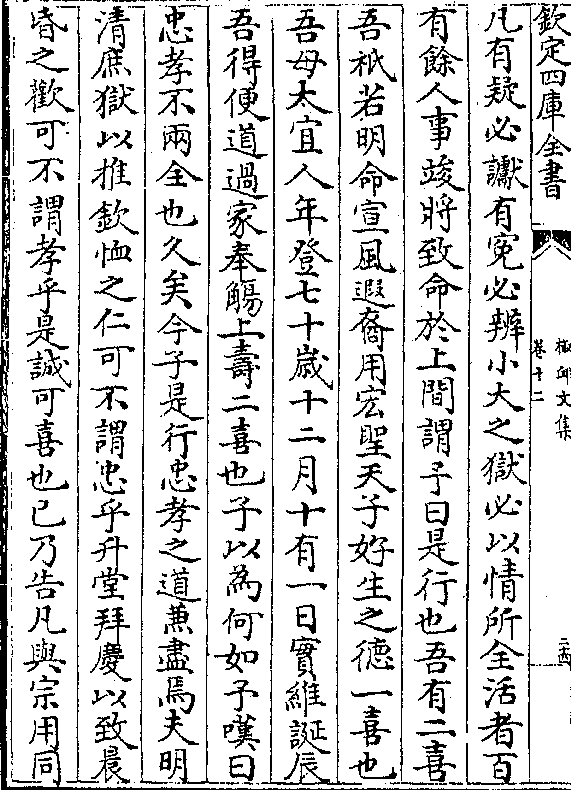 欽定四庫全書
文集
卷十二
凡有疑必讞有寃必辨小大之獄必以情所全活者百
有餘人事竣將致命於上間謂予曰是行也吾有二喜
吾祇若明命宣風遐裔用宏聖天子好生之德一喜也
吾母太宜人年登七十歲十二月十有一日實維誕辰
吾得便道過家奉觴上壽二喜也予以為何如予嘆曰
忠孝不兩全也久矣今子是行忠孝之道兼盡焉夫明
清庶獄以推欽恤之仁可不謂忠乎升堂拜慶以致晨
昏之歡可不謂孝乎是誠可喜也已乃告凡與宗用同